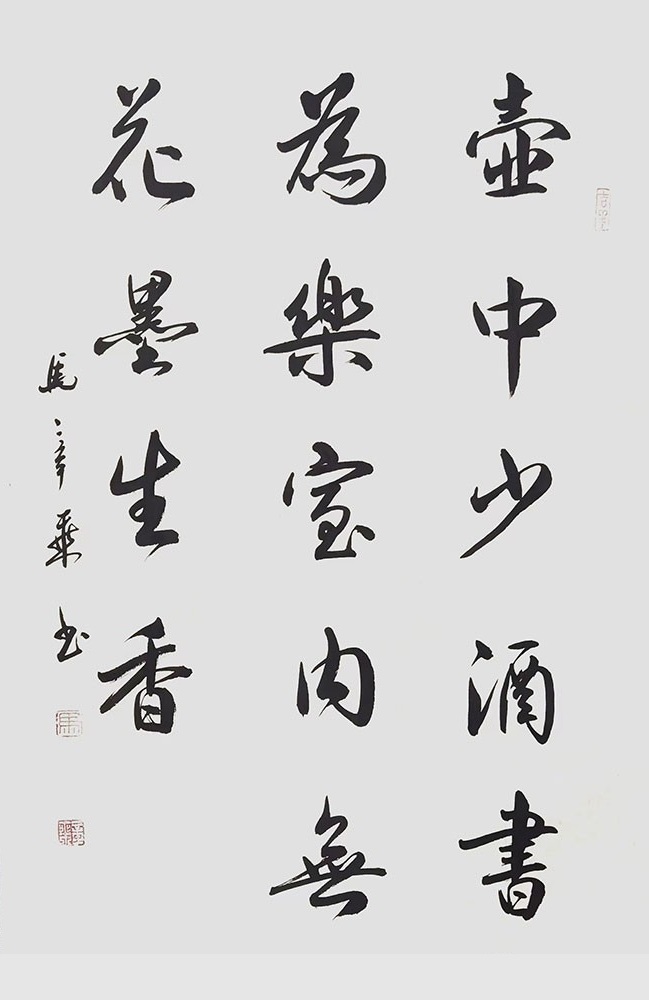 壺中少酒書
為樂室内無
花墨生香
馬
書
馬